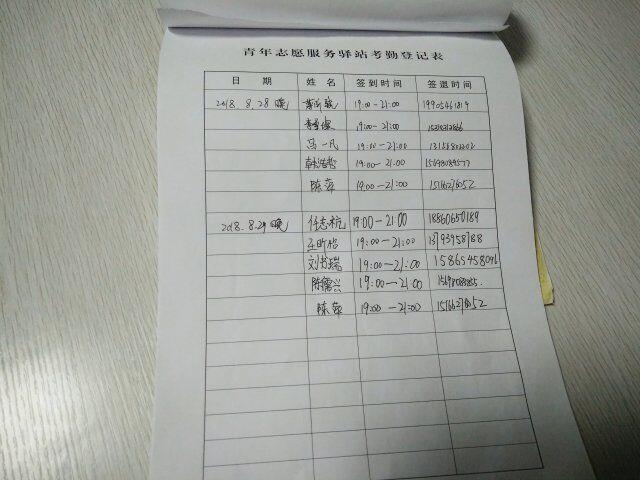 青年志愿服务驿站考勤登记表
日 期 姓 名 签到时间 签退时间
2018.8.28 晚 19:00-21:00 19905461819
19:00-21:00
冯一凡 19:00-21:00 13156802202
韩浩哲 19:00-21:00 15698089577
陈萍 19:00-21:00 15166276052
2018.8.29 晚 任志杭 19:00-21:00 18860650189
王昕怡 19:00-21:00 13793958788
刘书瑞 19:00-21:00
陈儒兴 19:00-21:00
陈萍 19:00-21:00 15166276052